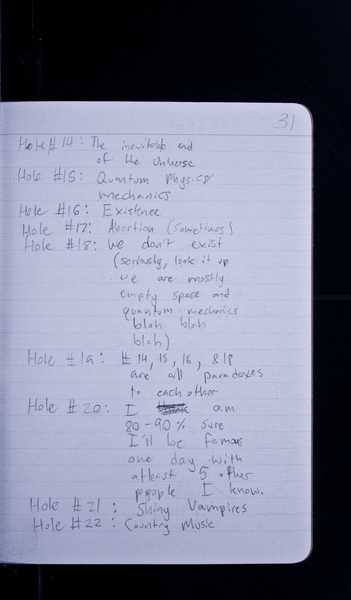 31
Hole #14: The inevitable end
of the Universe
Hole #15: Quantum physics
mechanics
Hole #16: Existence
Hole #17: Abortion (sometimes)
Hole #18: We don't exist
(seriously, look it up
we are mostly
empty space and
quantum mechanics
blah blah
blah)
Hole #19: #14, 15, 16, & 18
are all paradoxes
to each other
Hole #20: I am
80-90% sure
I'll be famous
one day with
atleast 5 other
people I know.
Hole #21: Shiny Vampires
Hole #22: Country Music